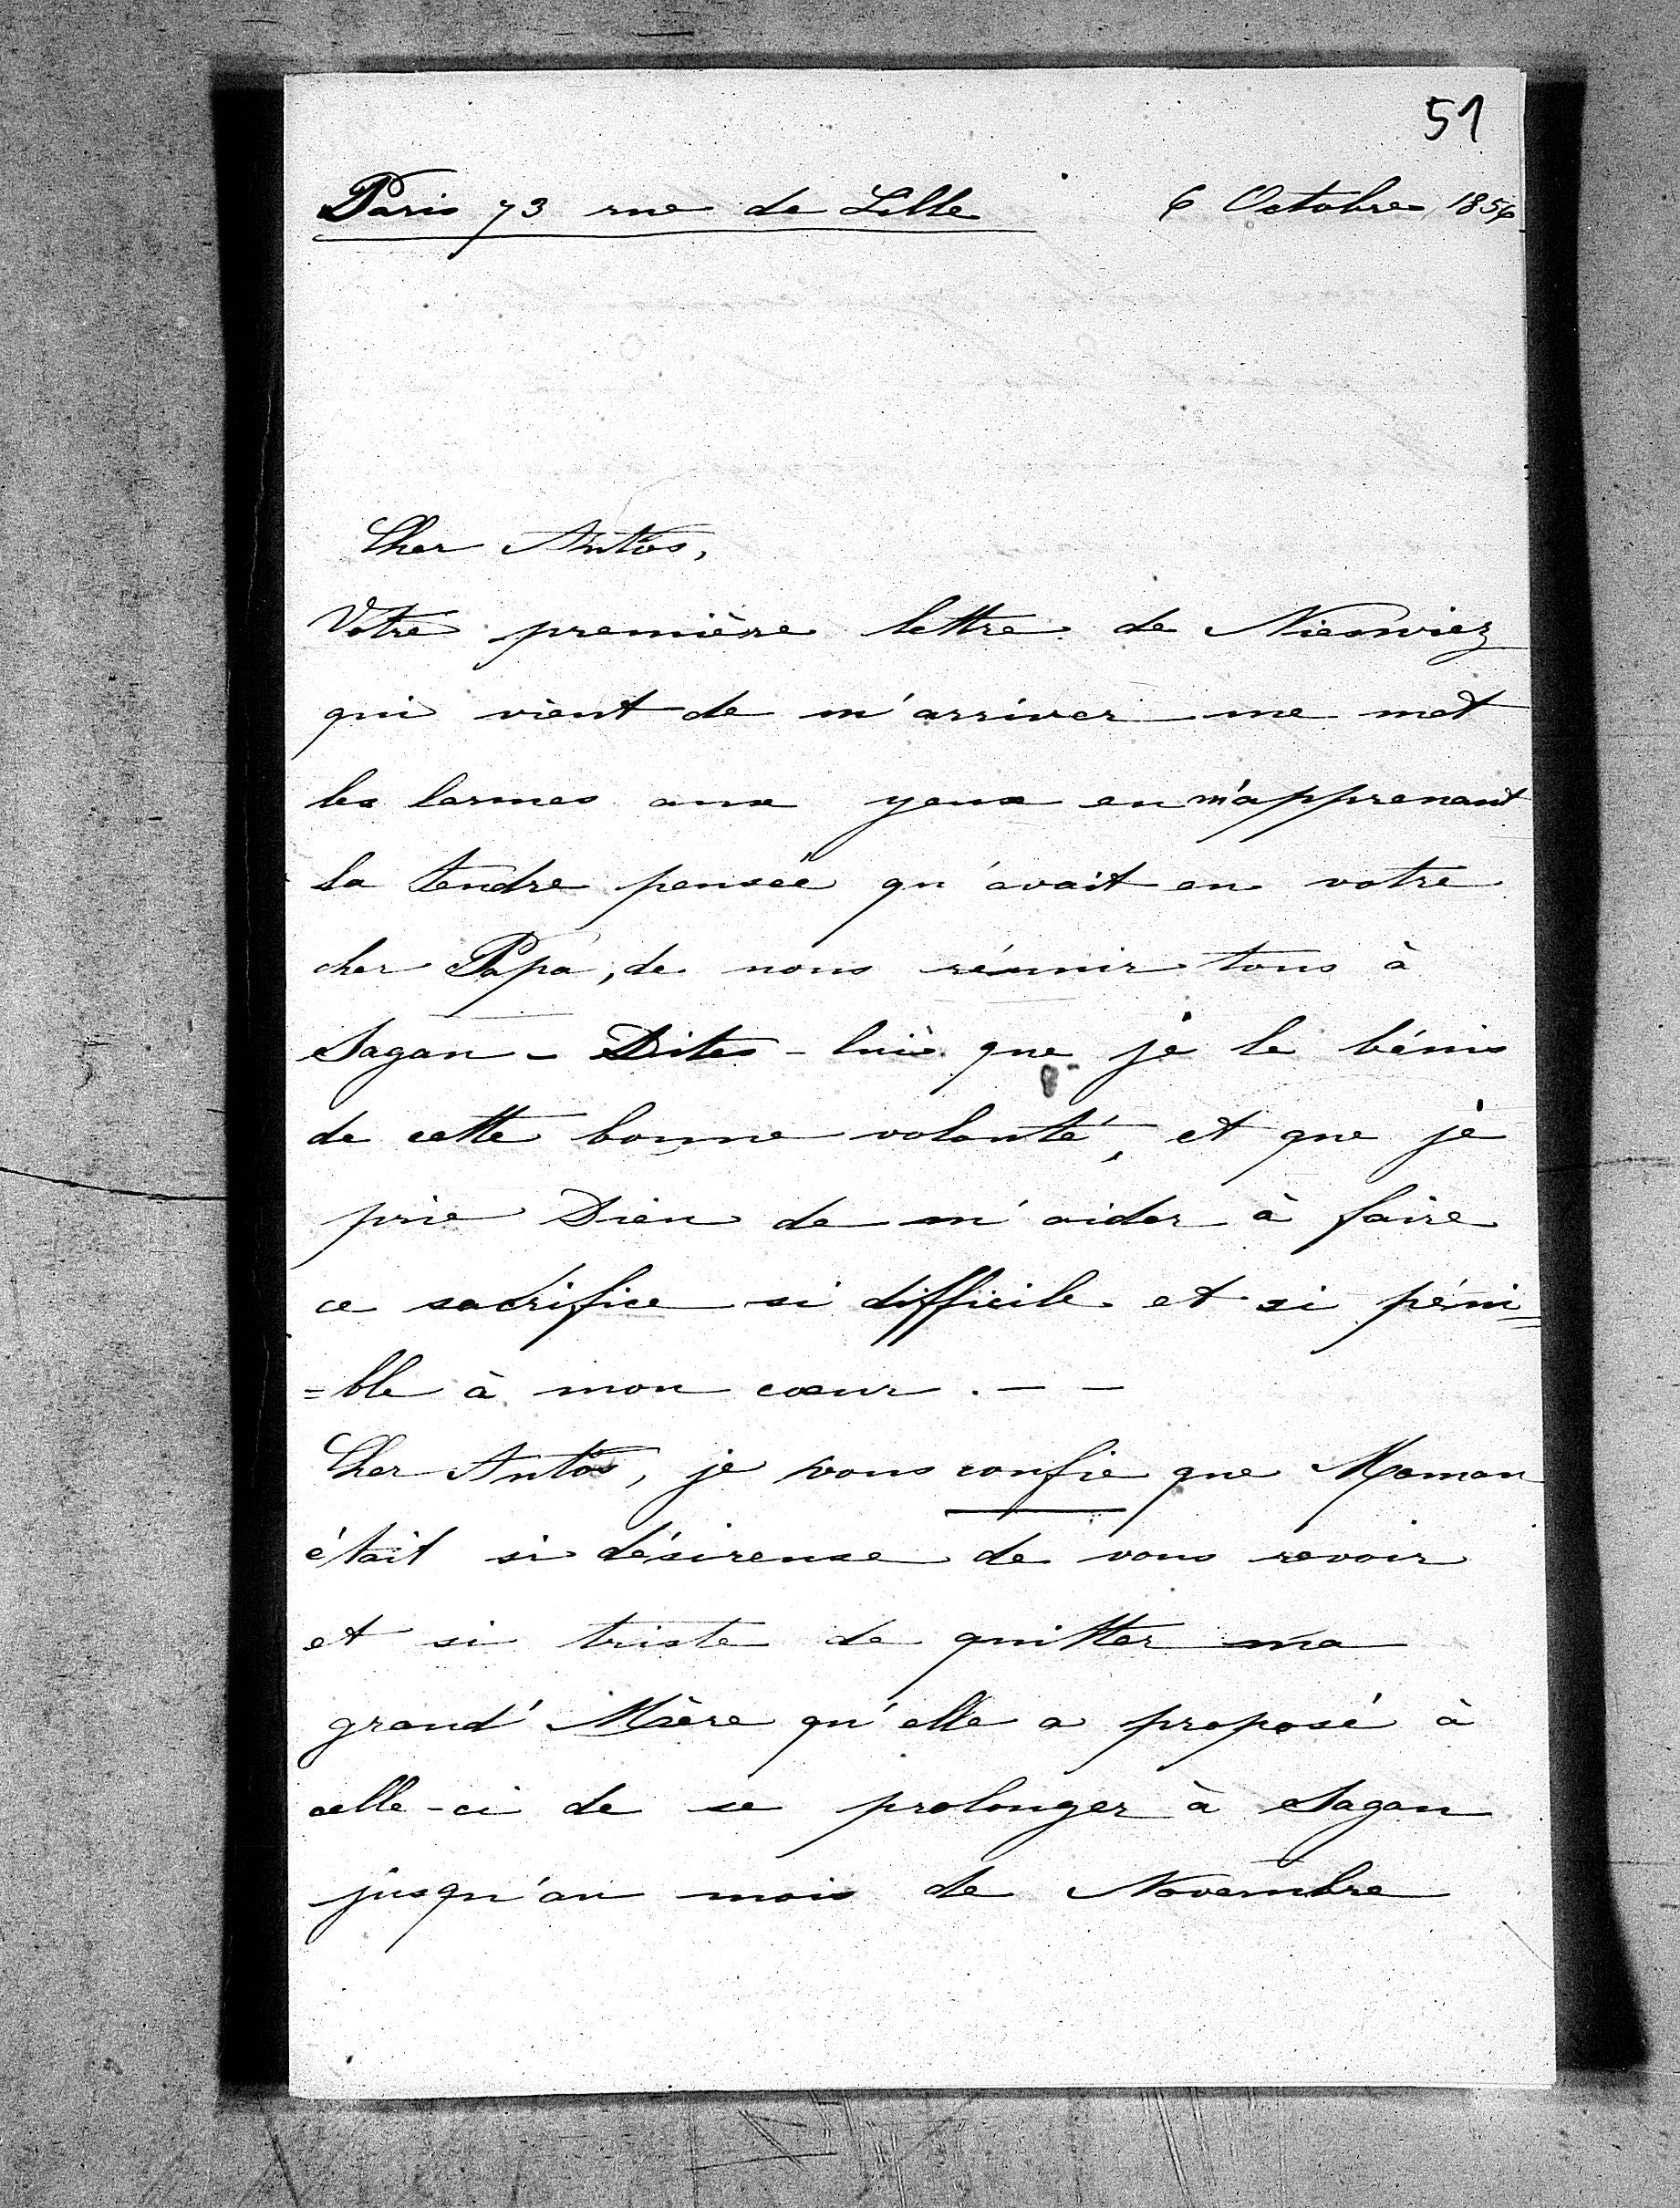 51
Paris 73 rue de Lille 6 Octobre 1856
Cher Antos,
Votre première lettre de Nieswiez
qui vient de m'arriver me met
les larmes aux yeux en m'apprenant
la tendre pensée qu'avait eu votre
cher Papa, de nous réunir tous à
Sagan - Dites-lui que je le bénis
de cette bonne volonté, et que je
prie Dieu de m'aider à faire
ce sacrifice si difficile et si péni=
=ble à mon cœur. - -
Cher Antos, je vous confie que Maman
était si désireuse de vous revoir
et si triste de quitter ma
grand' Mère qu'elle a proposé à
celle-ci de se prolonger à Sagan
jusqu'au mois de Novembre